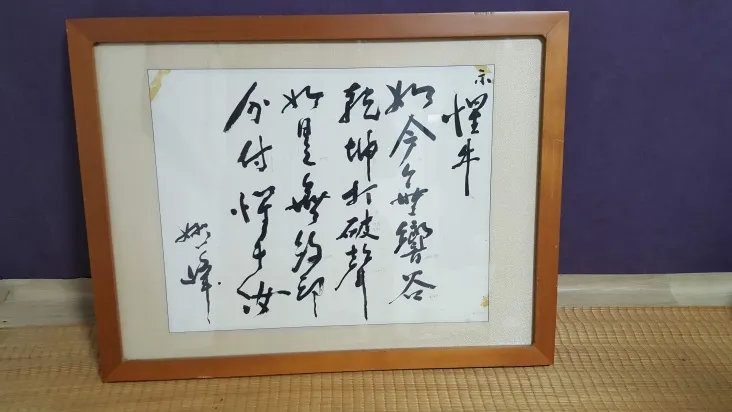 示
惺牛
如今無響谷
乾坤打破聲
如是無印
分付惺牛
峰